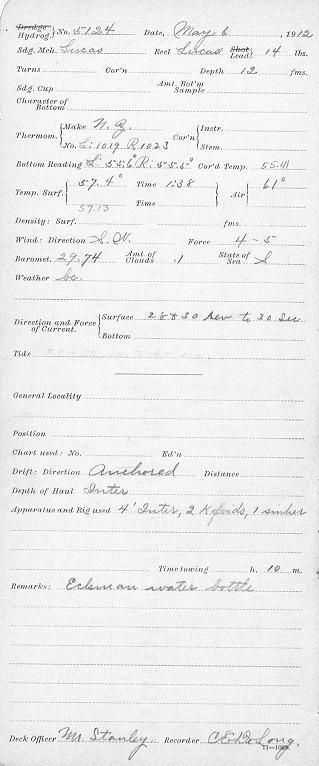 Dredge
Hydrog. No. 5124 Date, May 6, 1912
Sdg. Mch. Lucas Reel Lucas Shot Lead 14 lbs.
Turns Cor'n Depth 12 fms.
Sdg. Cup Amt. Bot'm Sample
Character of Bottom
Thermom. Make N. Z. Cor'n Instr.
No. L: 1019 R 1023 Stem.
Bottom Reading L: 55.6° R: 55.5° Cor'd Temp. 55.41
Temp. Surf. 57.4° Time 1:38 Air 61°
57.13 Time
Density: Surf. fms.
Wind: Direction S. W. Force 4-5
Baromet. 29.74 Amt of Clouds .1 State of Sea S
Weather bc.
Direction and Force of Current. Surface 28 * 30 rev to 30 Sec
Bottom
Tide
General Locality
Position
Chart used: No. Ed'n
Drift: Direction Anchored Distance
Depth of Haul Inter
Apparatus and Rig used 4' Inter, 2 Kofoids, 1
Time towing h. 10 m.
Remarks: Eckman water bottle
Deck Officer Mr. Stanley. Recorder C.E. DeLong.